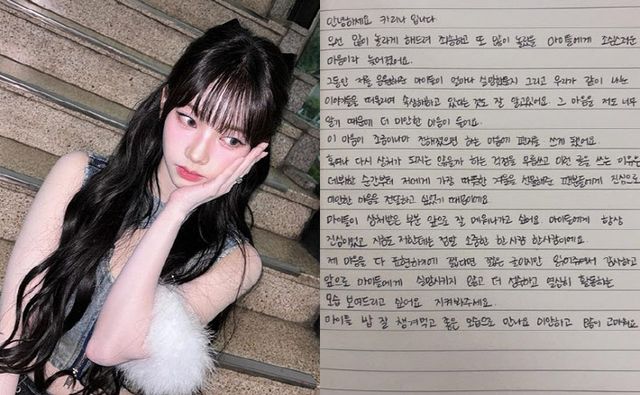 안녕하세요 카리나 입니다
우선 많이 놀라게 해드려 죄송하고 또 많이 놀랐을 마이들에게 조심스러운
마음이라 늦어졌어요.
그동안 저를 응원해준 마이들이 얼마나 실망했을지 그리고 우리가 같이 나눈
이야기들을 떠올리며 속상해하고 있다는 것도 잘 알고있어요. 그 마음을 저도 너무
알기 때문에 더 미안한 마음이 들어요.
이 마음이 조금이나마 전해졌으면 하는 마음에 편지를 쓰게 됐어요.
혹여나 다시 상처가 되지는 않을까 하는 걱정을 무릅쓰고 이런 글을 쓰는 이유은
데뷔한 순간부터 저에게 가장 따뜻한 겨울을 선물해준 팬분들에게 진심으로
미안한 마음을 전달하고 싶었기 때문이에요
마이들이 상처받은 부분 앞으로 잘 메워나가고 싶어요 마이들에게 항상
진심이었고 지금도 저한테는 정말 소중한 한 사람 한사람이에요.
제 마음을 다 표현하기에 짧다면 짧은 글이지만 읽어주셔서 감사하고
앞으로 마이들에게 실망시키지 않고 더 성숙하고 열심히 활동하는
모습 보여드리고 싶어요 지켜봐주세요.
마이들 밥 잘 챙겨먹고 좋은 모습으로 만나요 미안하고 많이 고마워요